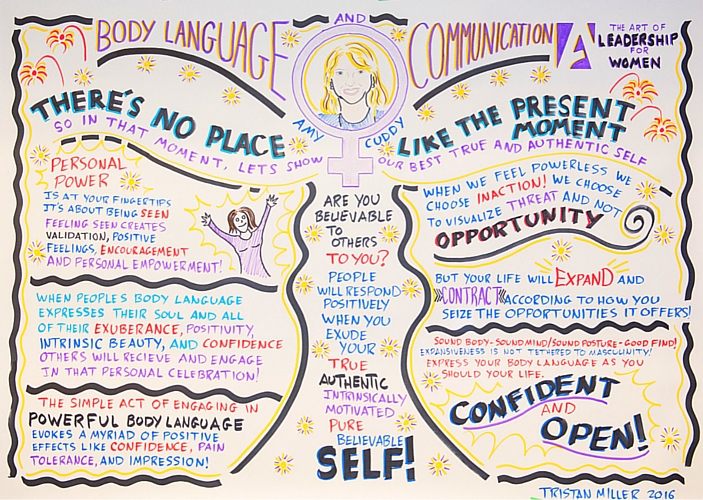 BODY LANGUAGE
AND
COMMUNICATION
THE ART OF
LEADERSHIP
FOR
WOMEN
AMY CUDDY
THERE'S NO PLACE
LIKE THE PRESENT
MOMENT
SO IN THAT MOMENT, LETS SHOW
OUR BEST TRUE AND AUTHENTIC SELF
PERSONAL
POWER
IS AT YOUR FINGERTIPS
IT'S ABOUT BEING SEEN
FEELING SEEN CREATES
VALIDATION, POSITIVE
FEELINGS, ENCOURAGEMENT
AND PERSONAL EMPOWERMENT!
WHEN PEOPLE'S BODY LANGUAGE
EXPRESSES THEIR SOUL AND ALL
OF THEIR EXUBERANCE, POSITIVITY,
INTRINSIC BEAUTY, AND CONFIDENCE
OTHERS WILL RECIEVE AND ENGAGE
IN THAT PERSONAL CELEBRATION!
THE SIMPLE ACT OF ENGAGING IN
POWERFUL BODY LANGUAGE
EVOKES A MYRIAD OF POSITIVE
EFFECTS LIKE CONFIDENCE, PAIN
TOLERANCE, AND IMPRESSION!
ARE YOU
BELIEVABLE
TO
OTHERS
TO YOU?
PEOPLE
WILL RESPOND
POSITIVELY
WHEN YOU
EXUDE
YOUR
TRUE
AUTHENTIC
INTRINSICALLY
MOTIVATED
PURE
BELIEVABLE
SELF!
WHEN WE FEEL POWERLESS WE
CHOOSE INACTION! WE CHOOSE
TO VISUALIZE THREAT AND NOT
OPPORTUNITY
BUT YOUR LIFE WILL EXPAND AND
CONTRACT ACCORDING TO HOW YOU
SEIZE THE OPPORTUNITIES IT OFFERS!
SOUND BODY-SOUND MIND/SOUND POSTURE-GOOD FIND!
EXPANSIVENESS IS NOT TETHERED TO MASCULINITY!
EXPRESS YOUR BODY LANGUAGE AS YOU
SHOULD YOUR LIFE.
CONFIDENT
AND
OPEN!
TRISTAN MILLER 2016